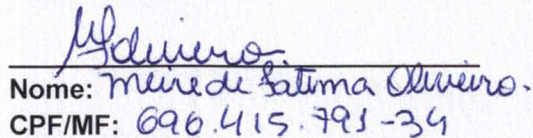 Nome: Meire de Fatima Oliveira.
CPF/MF: 696.415.791-34